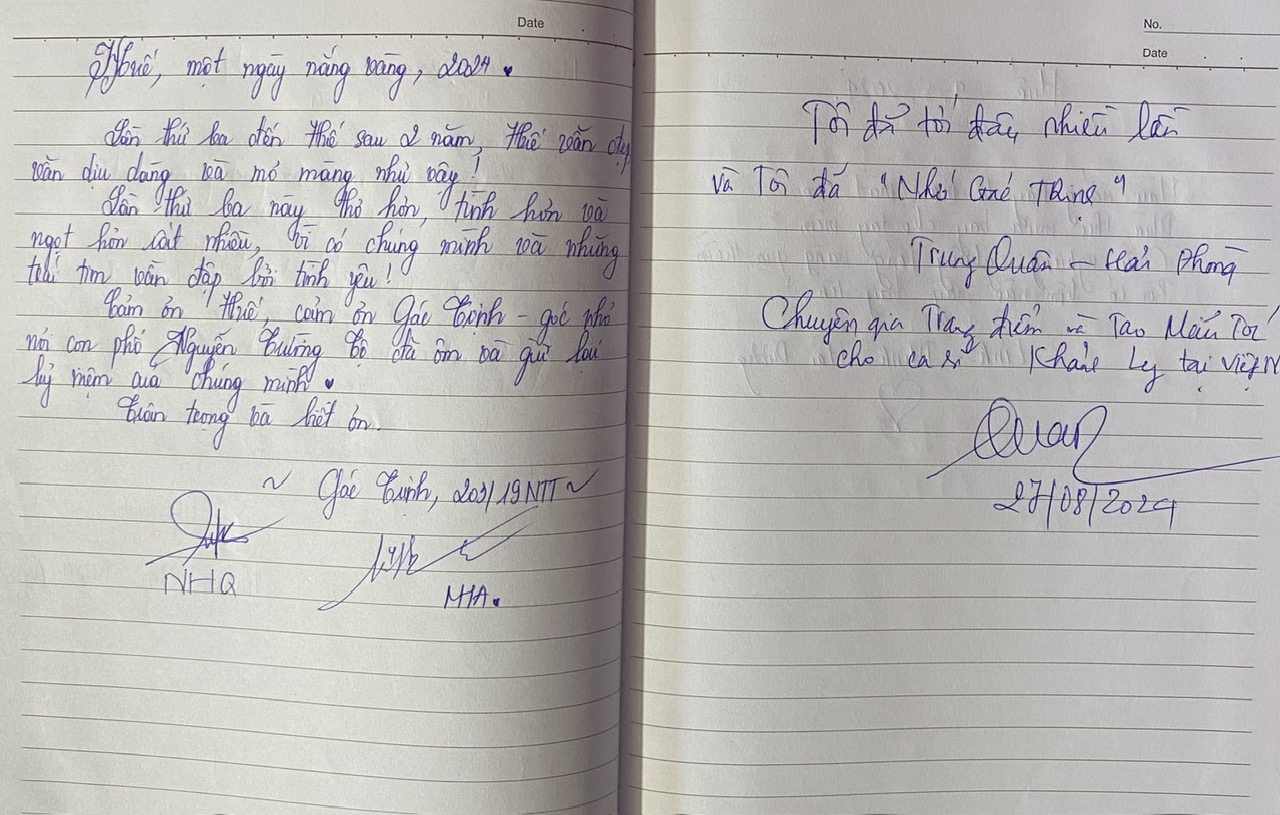 Date
Huế, một ngày nắng vàng, 2024 ♥
Lần thứ ba đến Huế sau 2 năm, Huế vẫn đẹp
vẫn dịu dàng và mơ màng như vậy!
Lần thứ ba này thơ hơn, tình hơn và
ngọt hơn rất nhiều, vì có chúng mình và những
trái tim vẫn đập bởi tình yêu!
Cảm ơn Huế, cảm ơn Gác Trịnh - góc phố
nơi con phố Nguyễn Trường Tộ đã ôm và giữ lại
kỷ niệm của chúng mình ♥
Trân trọng và biết ơn.
~ Gác Trịnh, 203/19 NTT ~
NHQ
NHA ♥
No.
Date
Tôi đã tới đây nhiều lần
và Tôi đã "Nhớ Gác Trịnh"
Trung Quân - Hải Phòng
Chuyên gia Trang điểm và Tạo Mẫu Tóc
cho ca sĩ Khánh Ly tại Việt N
Quan
27/08/2024